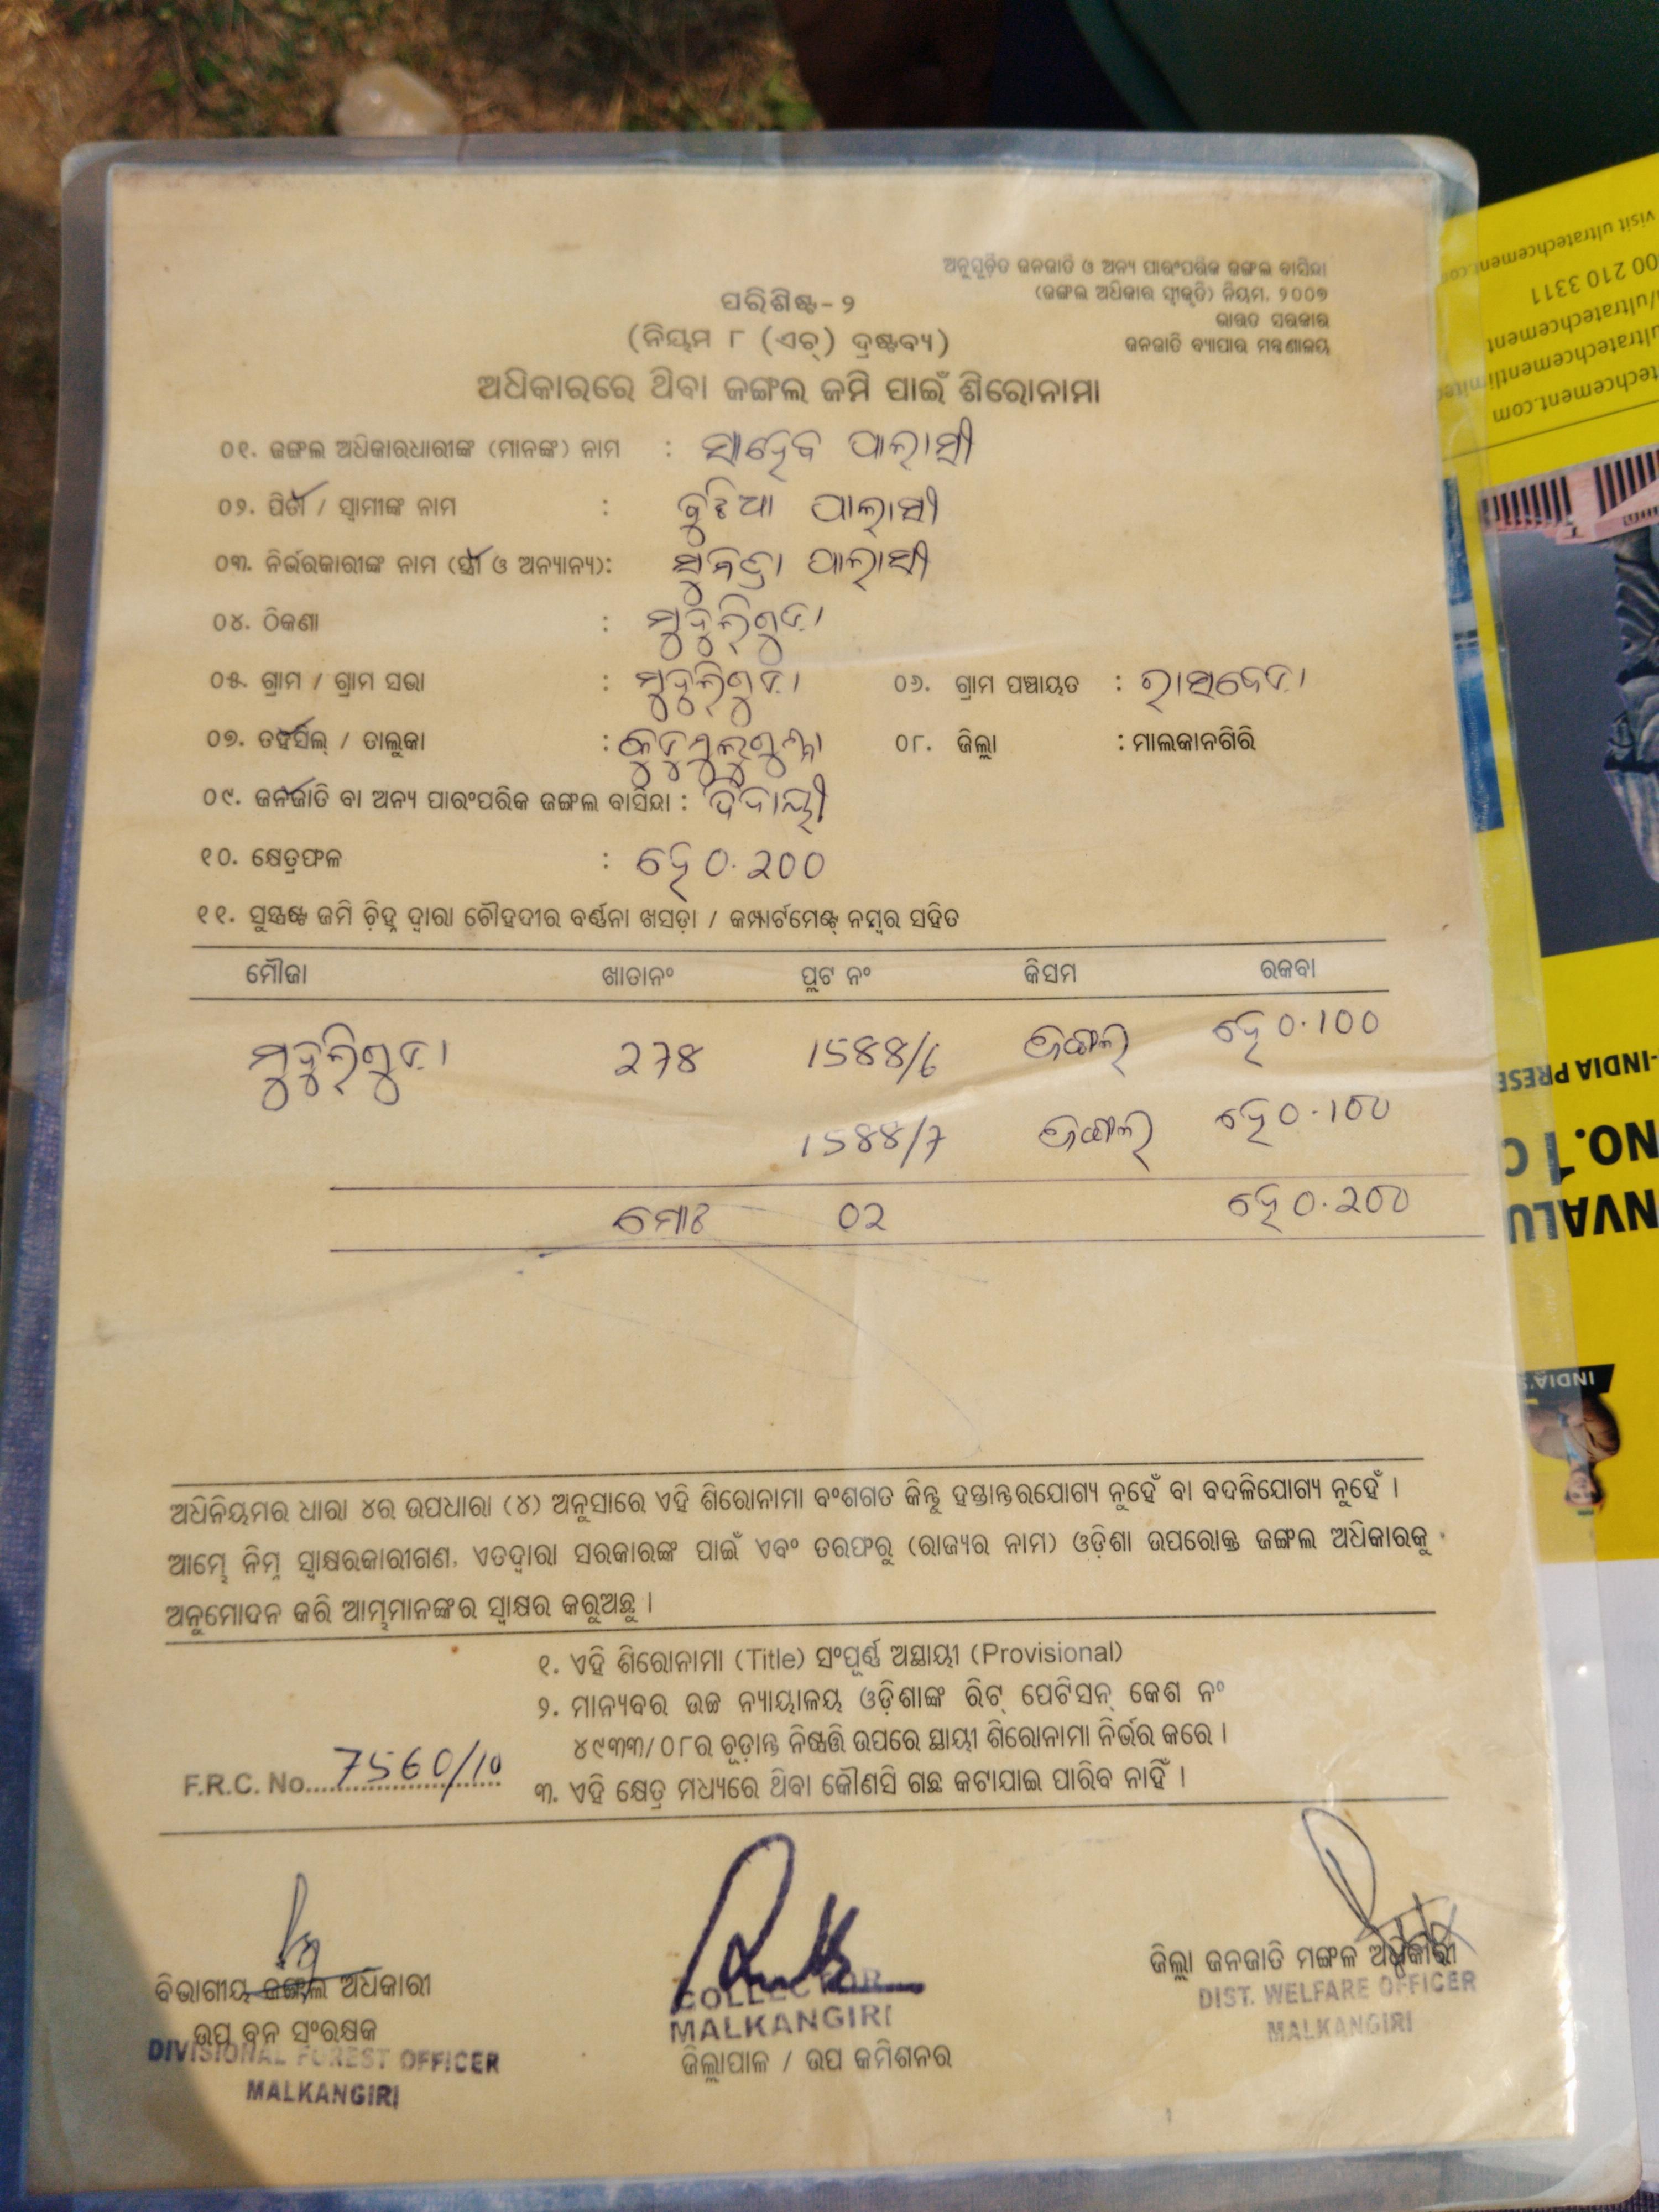 ଅନୁସୂଚିତ ଜନଜାତି ଓ ଅନ୍ୟ ପାରଂପରିକ ଜଙ୍ଗଲ ବାସିନ୍ଦା
(ଜଙ୍ଗଲ ଅଧିକାର ସ୍ୱୀକୃତି) ନିୟମ, ୨୦୦୭
ଭାରତ ସରକାର
ଜନଜାତି ବ୍ୟାପାର ମନ୍ତ୍ରଣାଳୟ
ପରିଶିଷ୍ଟ-୨
(ନିୟମ ୮ (ଏଚ୍) ଦ୍ରଷ୍ଟବ୍ୟ)
ଅଧିକାରରେ ଥିବା ଜଙ୍ଗଲ ଜମି ପାଇଁ ଶିରୋନାମା
୦୧. ଜଙ୍ଗଲ ଅଧିକାରଧାରୀଙ୍କ (ମାନଙ୍କ) ନାମ : ସାହେବ ପାଲାସୀ
୦୨. ପିତା / ସ୍ୱାମୀଙ୍କ ନାମ : ବୁଟିଆ ପାଲାସୀ
୦୩. ନିର୍ଭରକାରୀଙ୍କ ନାମ (ସ୍ତ୍ରୀ ଓ ଅନ୍ୟାନ୍ୟ): ପାଲାସୀ
୦୪. ଠିକଣା : ମୁଦୁଲିଗୁଡ଼ା
୦୫. ଗ୍ରାମ / ଗ୍ରାମ ସଭା : ମୁଦୁଲିଗୁଡ଼ା ୦୬. ଗ୍ରାମ ପଞ୍ଚାୟତ : ରାସବେଡ଼ା
୦୭. ତହସିଲ୍ / ତାଲୁକା : କୁଡୁମୁଲୁଗୁମ୍ମା ୦୮. ଜିଲ୍ଲା : ମାଲକାନଗିରି
୦୯. ଜନଜାତି ବା ଅନ୍ୟ ପାରଂପରିକ ଜଙ୍ଗଲ ବାସିନ୍ଦା :
୧୦. କ୍ଷେତ୍ରଫଳ : ହେ 0.200
୧୧. ସୁସ୍ପଷ୍ଟ ଜମି ଚ଼ିହ୍ନ ଦ୍ୱାରା ଚୌହଦୀର ବର୍ଣ୍ଣନା ଖସଡ଼ା / କମ୍ପାର୍ଟମେଣ୍ଟ୍ ନମ୍ବର ସହିତ
ମୌଜା ଖାତାନଂ ପ୍ଲଟ ନଂ କିସମ ରକବା
ମୁଦୁଲିଗୁଡ଼ା 278 1588/6 ଜଙ୍ଗଲ ହେ 0.100
1588/7 ଜଙ୍ଗଲ ହେ 0.100
ମୋଟ 02 ହେ 0.200
ଅଧିନିୟମର ଧାରା ୪ର ଉପଧାରା (୪) ଅନୁସାରେ ଏହି ଶିରୋନାମା ବଂଶଗତ କିନ୍ତୁ ହସ୍ତାନ୍ତରଯୋଗ୍ୟ ନୁହେଁ ବା ବଦଳିଯୋଗ୍ୟ ନୁହେଁ ।
ଆମ୍ଭେ ନିମ୍ନ ସ୍ୱାକ୍ଷରକାରୀଗଣ, ଏତଦ୍ୱାରା ସରକାରଙ୍କ ପାଇଁ ଏବଂ ତରଫରୁ (ରାଜ୍ୟର ନାମ) ଓଡ଼ିଶା ଉପରୋକ୍ତ ଜଙ୍ଗଲ ଅଧିକାରକୁ
ଅନୁମୋଦନ କରି ଆମ୍ଭମାନଙ୍କର ସ୍ୱାକ୍ଷର କରୁଅଛୁ ।
୧. ଏହି ଶିରୋନାମା (Title) ସଂପୂର୍ଣ୍ଣ ଅସ୍ଥାୟୀ (Provisional)
୨. ମାନ୍ୟବର ଉଚ୍ଚ ନ୍ୟାୟାଳୟ ଓଡ଼ିଶାଙ୍କ ରିଟ୍ ପେଟିସନ୍ କେଶ ନଂ
୪୯୩୩/୦୮ର ଚୂଡ଼ାନ୍ତ ନିଷ୍ପତ୍ତି ଉପରେ ସ୍ଥାୟୀ ଶିରୋନାମା ନିର୍ଭର କରେ ।
F.R.C. No. 7560/10
୩. ଏହି କ୍ଷେତ୍ର ମଧ୍ୟରେ ଥିବା କୌଣସି ଗଛ କଟାଯାଇ ପାରିବ ନାହିଁ ।
ବିଭାଗୀୟ ଜଙ୍ଗଲ ଅଧିକାରୀ
ଉପ ବନ ସଂରକ୍ଷକ
DIVISIONAL FOREST OFFICER
MALKANGIRI
COLLECTOR
MALKANGIRI
ଜିଲ୍ଲାପାଳ / ଉପ କମିଶନର
ଜିଲ୍ଲା ଜନଜାତି ମଙ୍ଗଳ ଅଧିକାରୀ
DIST. WELFARE OFFICER
MALKANGIRI
visit ultratechcement.com
00 210 3311
/ultratechcement
INDIA PRESE
NO. 1 C
INDIA'S